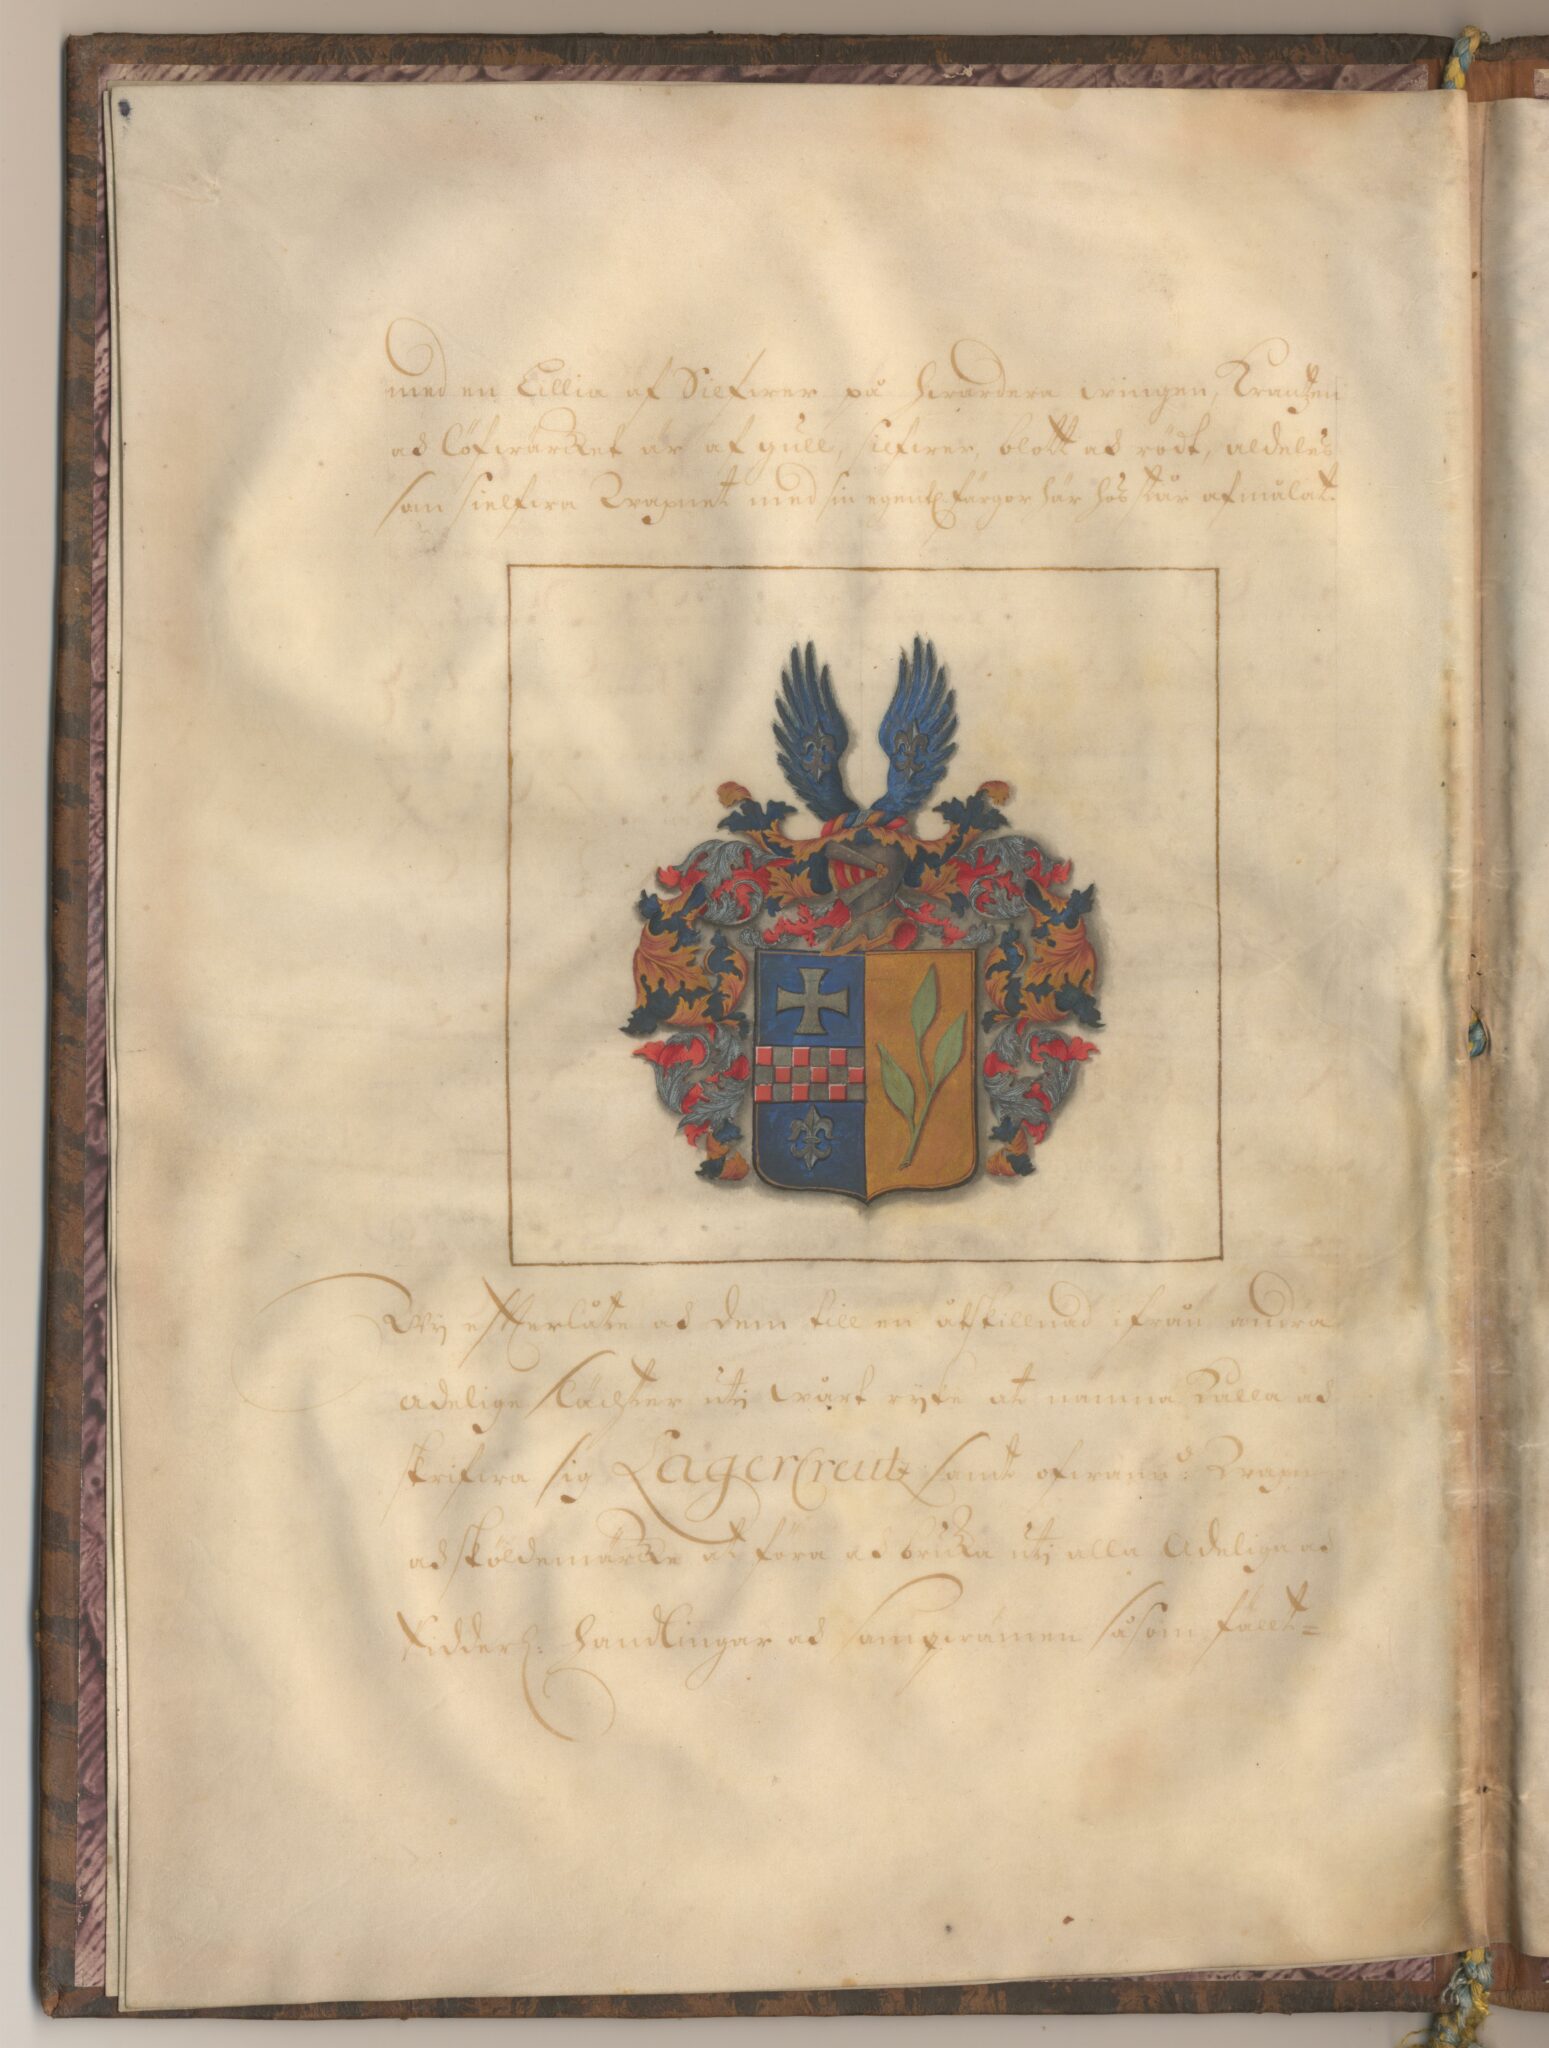 med en Lillia af Silfwer på hwardera wingen, Krantzen
och Löfwärcket är af gull, silfwer, blott och rödt, aldeles
som sielfwa Wapnet med sin egentl. färgor här hos står afmålat.
Wij effterlåte och dem till en åtskillnad ifrån andra
Adelige slächter uti wårt ryke at nämna kalla och
skrifwa sig LagerCreutz samt ofwann:d Wapn
och sköldemärcke at föra och bruka uti alla Adelige och
Ridderl: handlingar och sampwämen såsom fällt=